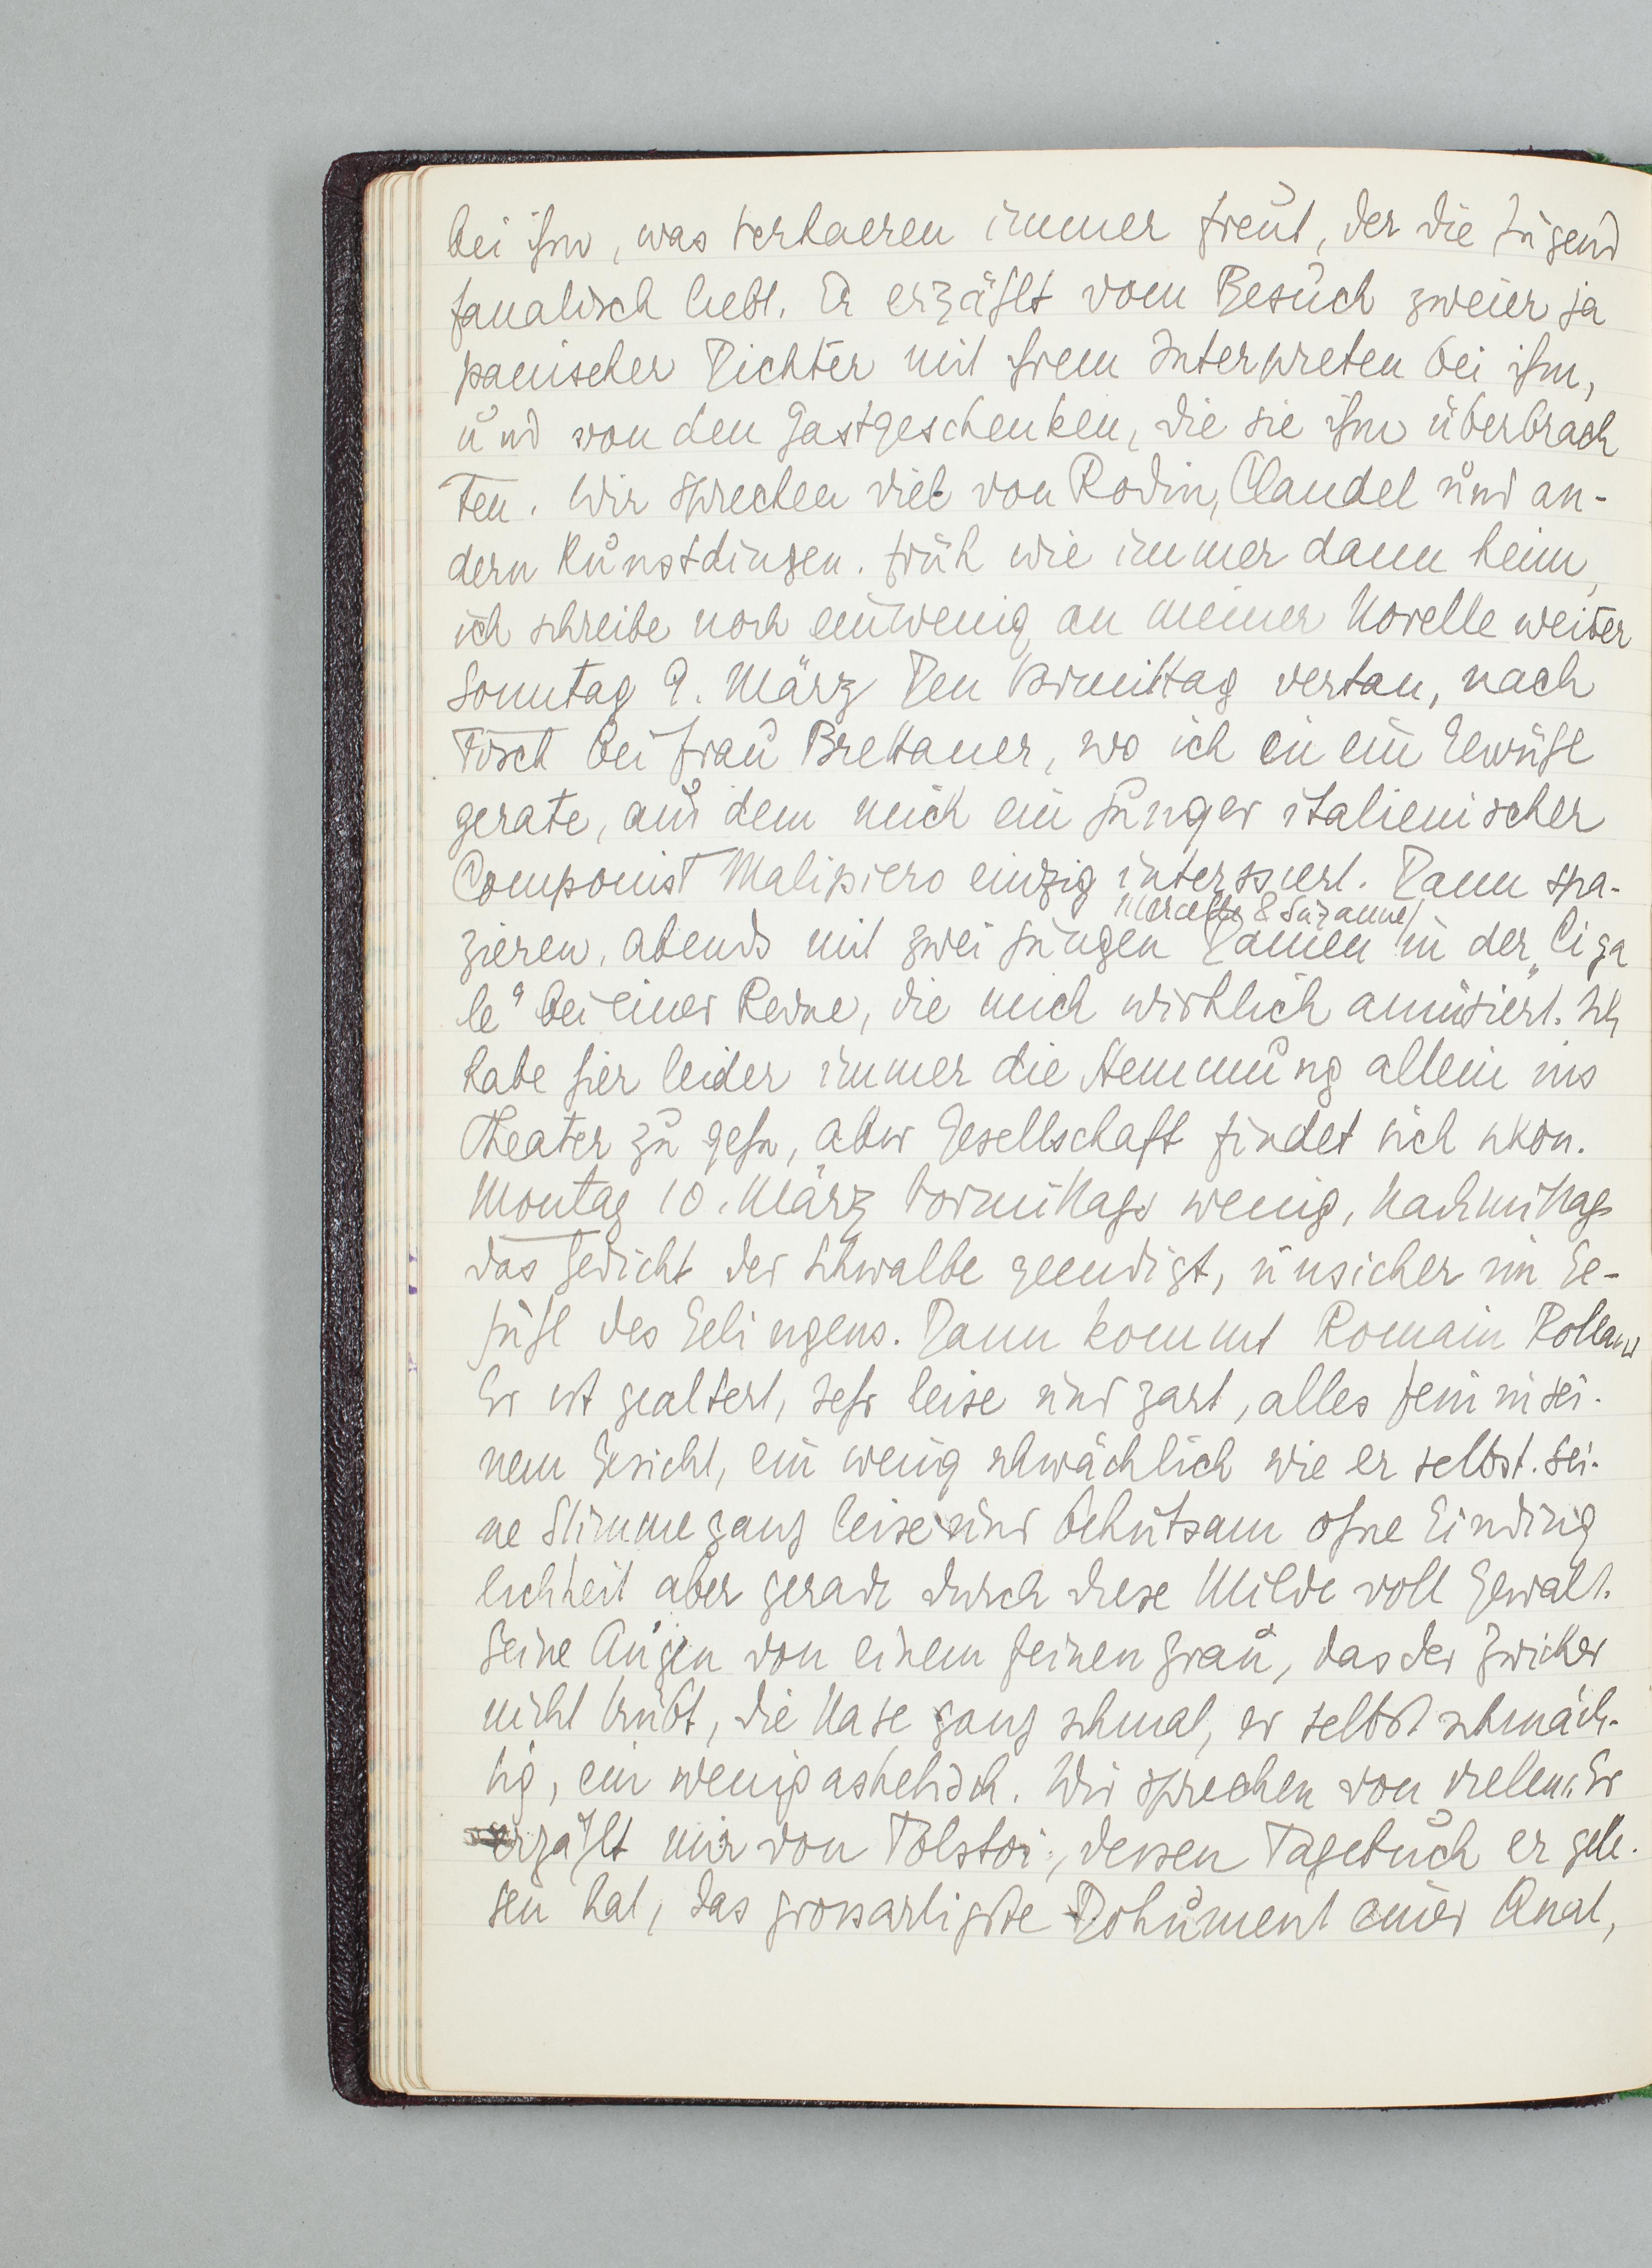 bei ihm, was Verhaeren immer freut, der die Jugend
fanatisch liebt. Er erzählt vom Besuch zweier ja
panischer Dichter mit ihrem Interpreten bei ihm,
und von den Gastgeschenken, die sie ihm überbrach
ten. Wir sprechen viel von Rodin, Claudel und an-
dern Kunstdingen. Früh wie immer dann heim,
ich schreibe noch ein wenig an meiner Novelle weiter
Sonntag 9. März Den Vormittag vertan, nach
Tisch bei Frau Brettauer, wo ich in ein Gewühl
gerate, aus dem mich ein junger italienischer
Componist Malipiero einzig interssiert. Dann spa-
Marcelle & Suzanne
zieren, abends mit zwei jungen Damen in der „Ciga
le“ bei einer Revue, die mich wirklich amüsiert. Ich
habe hier leider immer die Hemmung allein ins
Theater zu gehn, aber Gesellschaft findet sich schon.
Montag 10. März Vormittags wenig, Nachmittags
das Gedicht der Schwalbe geendigt, unsicher im Ge-
fühl des Gelingens. Dann kommt Romain Rolland
Er ist gealtert, sehr leise und zart, alles fein in sei-
nem Gesicht, ein wenig schwächlich wie er selbst. Sei-
ne Stimme ganz leise und behutsam ohne Eindring
lichkeit aber gerade durch diese Milde voll Gewalt.
Seine Augen von einem feinen Grau, das der Zwicker
nicht trübt, die Nase ganz schmal, er selbst schmäch-
tig, ein wenig asthetisch. Wir sprechen von vielem. Er
erzählt mir von Tolstoi, dessen Tagebuch er gele-
sen hat, das grossartigste Dokument einer Qual,